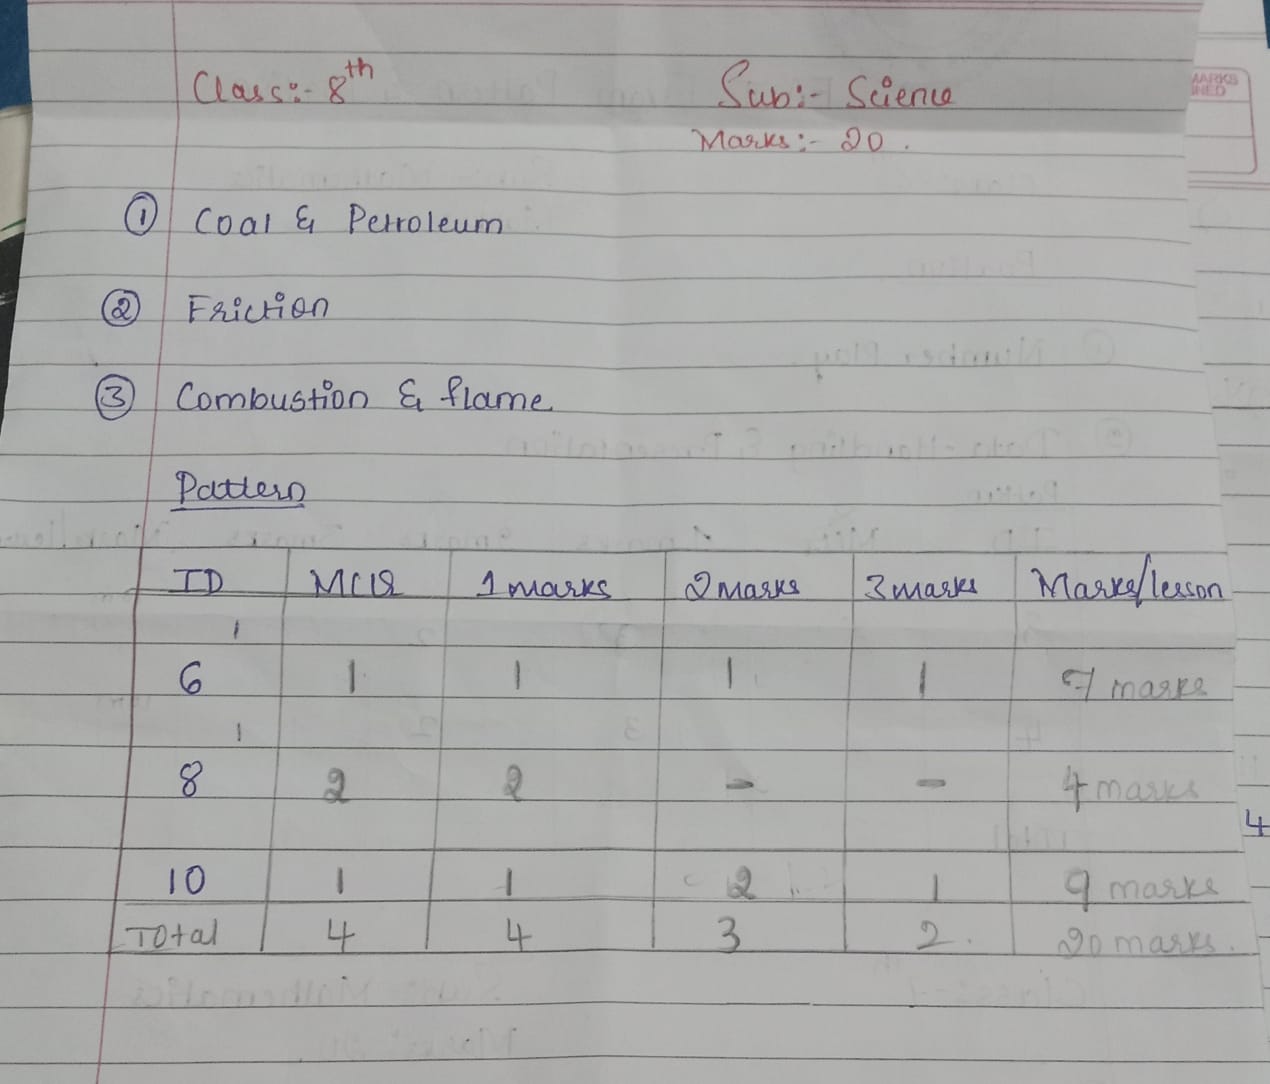 Class:- 8th
Sub:- Science
Marks:- 20.
① Coal & Petroleum
② Friction
③ Combustion & flame
Pattern
ID MCQ 1 marks 2 marks 3 marks Marks/lesson
1
6 1 1 1 1 7 marks
1
8 2 2 - - 4 marks
4
10 1 1 2 1 9 marks
Total 4 4 3 2. 20 marks.
MARKS